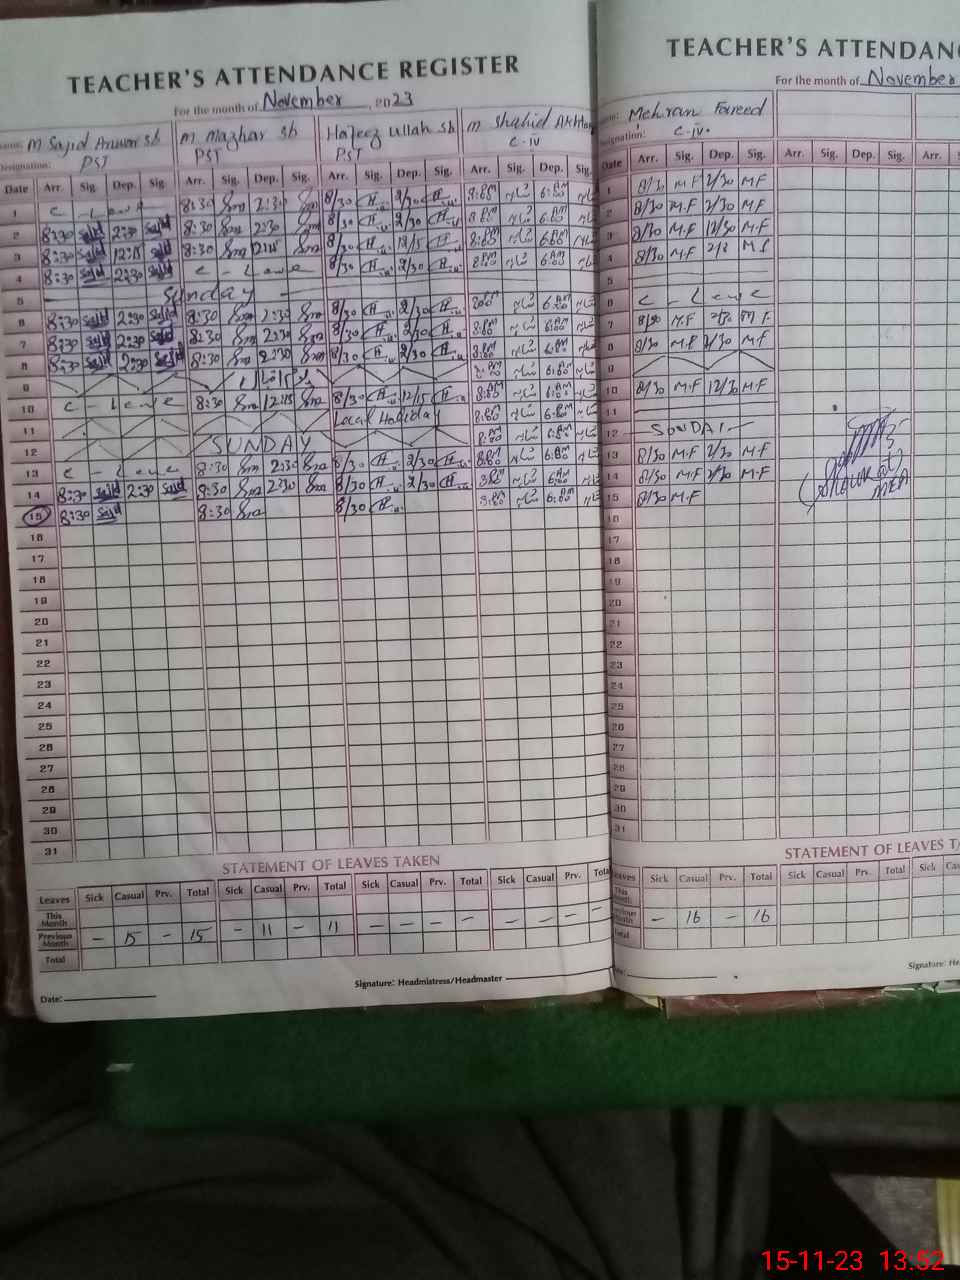 TEACHER'S ATTENDANCE REGISTER
For the month of November, 2023
M Sajid Anwar sb M Mazhar sb Hafeez Ullah sb M Shahid Akhtar
Designation: PST PST PST C-iv
Date Arr. Sig. Dep. Sig. Arr. Sig. Dep. Sig. Arr. Sig. Dep. Sig. Arr. Sig. Dep. Sig.
1 C - Leave 8:30 2:30 8/30 2/30 8:00 PM 6:00 AM
2 8:30 Sajid 2:30 Sajid 8:30 2:30 8/30 2/30 8:00 6:00 AM
3 8:30 Sajid 12:15 Sajid 8:30 12:15 8/30 12/15 8:00 PM 6:00 AM
4 8:30 Sajid 2:30 Sajid C - Leave 8/30 2/30 8:00 PM 6:00 AM
5 Sunday
6 8:30 Sajid 2:30 Sajid 8:30 2:30 8/30 2/30 6:00 AM
7 8:30 Sajid 2:30 Sajid 8:30 2:30 8/30 2/30 8:00 PM 6:00 AM
8 8:30 Sajid 2:30 Sajid 8:30 2:30 8/30 2/30 8:00 PM 6:00 AM
9
10 C - Leave 8:30 12:15 8/30 12/15 8:00 PM 6:00 AM
11 Local Holiday 8:00 PM 6:00 AM
12 SUNDAY 8:00 PM 6:00 AM
13 C - Leave 8:30 2:30 8/30 2/30 8:00 PM 6:00 AM
14 8:30 Sajid 2:30 Sajid 8:30 2:30 8/30 2/30 8:00 PM 6:00 AM
15 8:30 Sajid 8:30 8/30 8:00 PM 6:00 AM
16
17
18
19
20
21
22
23
24
25
26
27
28
29
30
31
STATEMENT OF LEAVES TAKEN
Leaves Sick Casual Prv. Total Sick Casual Prv. Total Sick Casual Prv. Total Sick Casual Prv. Total
This Month
Previous Month - 15 - 15 - 11 - 11 - - - - - - - -
Total
Date: Signature: Headmistress/Headmaster
TEACHER'S ATTENDANC
For the month of November
Mehran Fareed
Designation: C-iv.
Date Arr. Sig. Dep. Sig. Arr. Sig. Dep. Sig. Arr.
1 8/30 M.F 2/30 M.F
2 8/30 M.F 2/30 M.F
3 8/30 M.F 12/30 M.F
4 8/30 M.F M.F
5
6 C - Leave
7 8/30 M.F 2/30 M.F
8 8/30 M.F 2/30 M.F
9
10 8/30 M.F 12/30 M.F
11
12 SUNDAY
13 8/30 M.F 2/30 M.F
14 8/30 M.F 2/30 M.F
15 8/30 M.F
MEA
16
17
18
19
20
21
22
23
24
25
26
27
28
29
30
31
STATEMENT OF LEAVES TA
Leaves Sick Casual Prv. Total Sick Casual Prv. Total Sick Cas
This Month
Previous Month - 16 - 16
Total
Signature: He
15-11-23 13:52